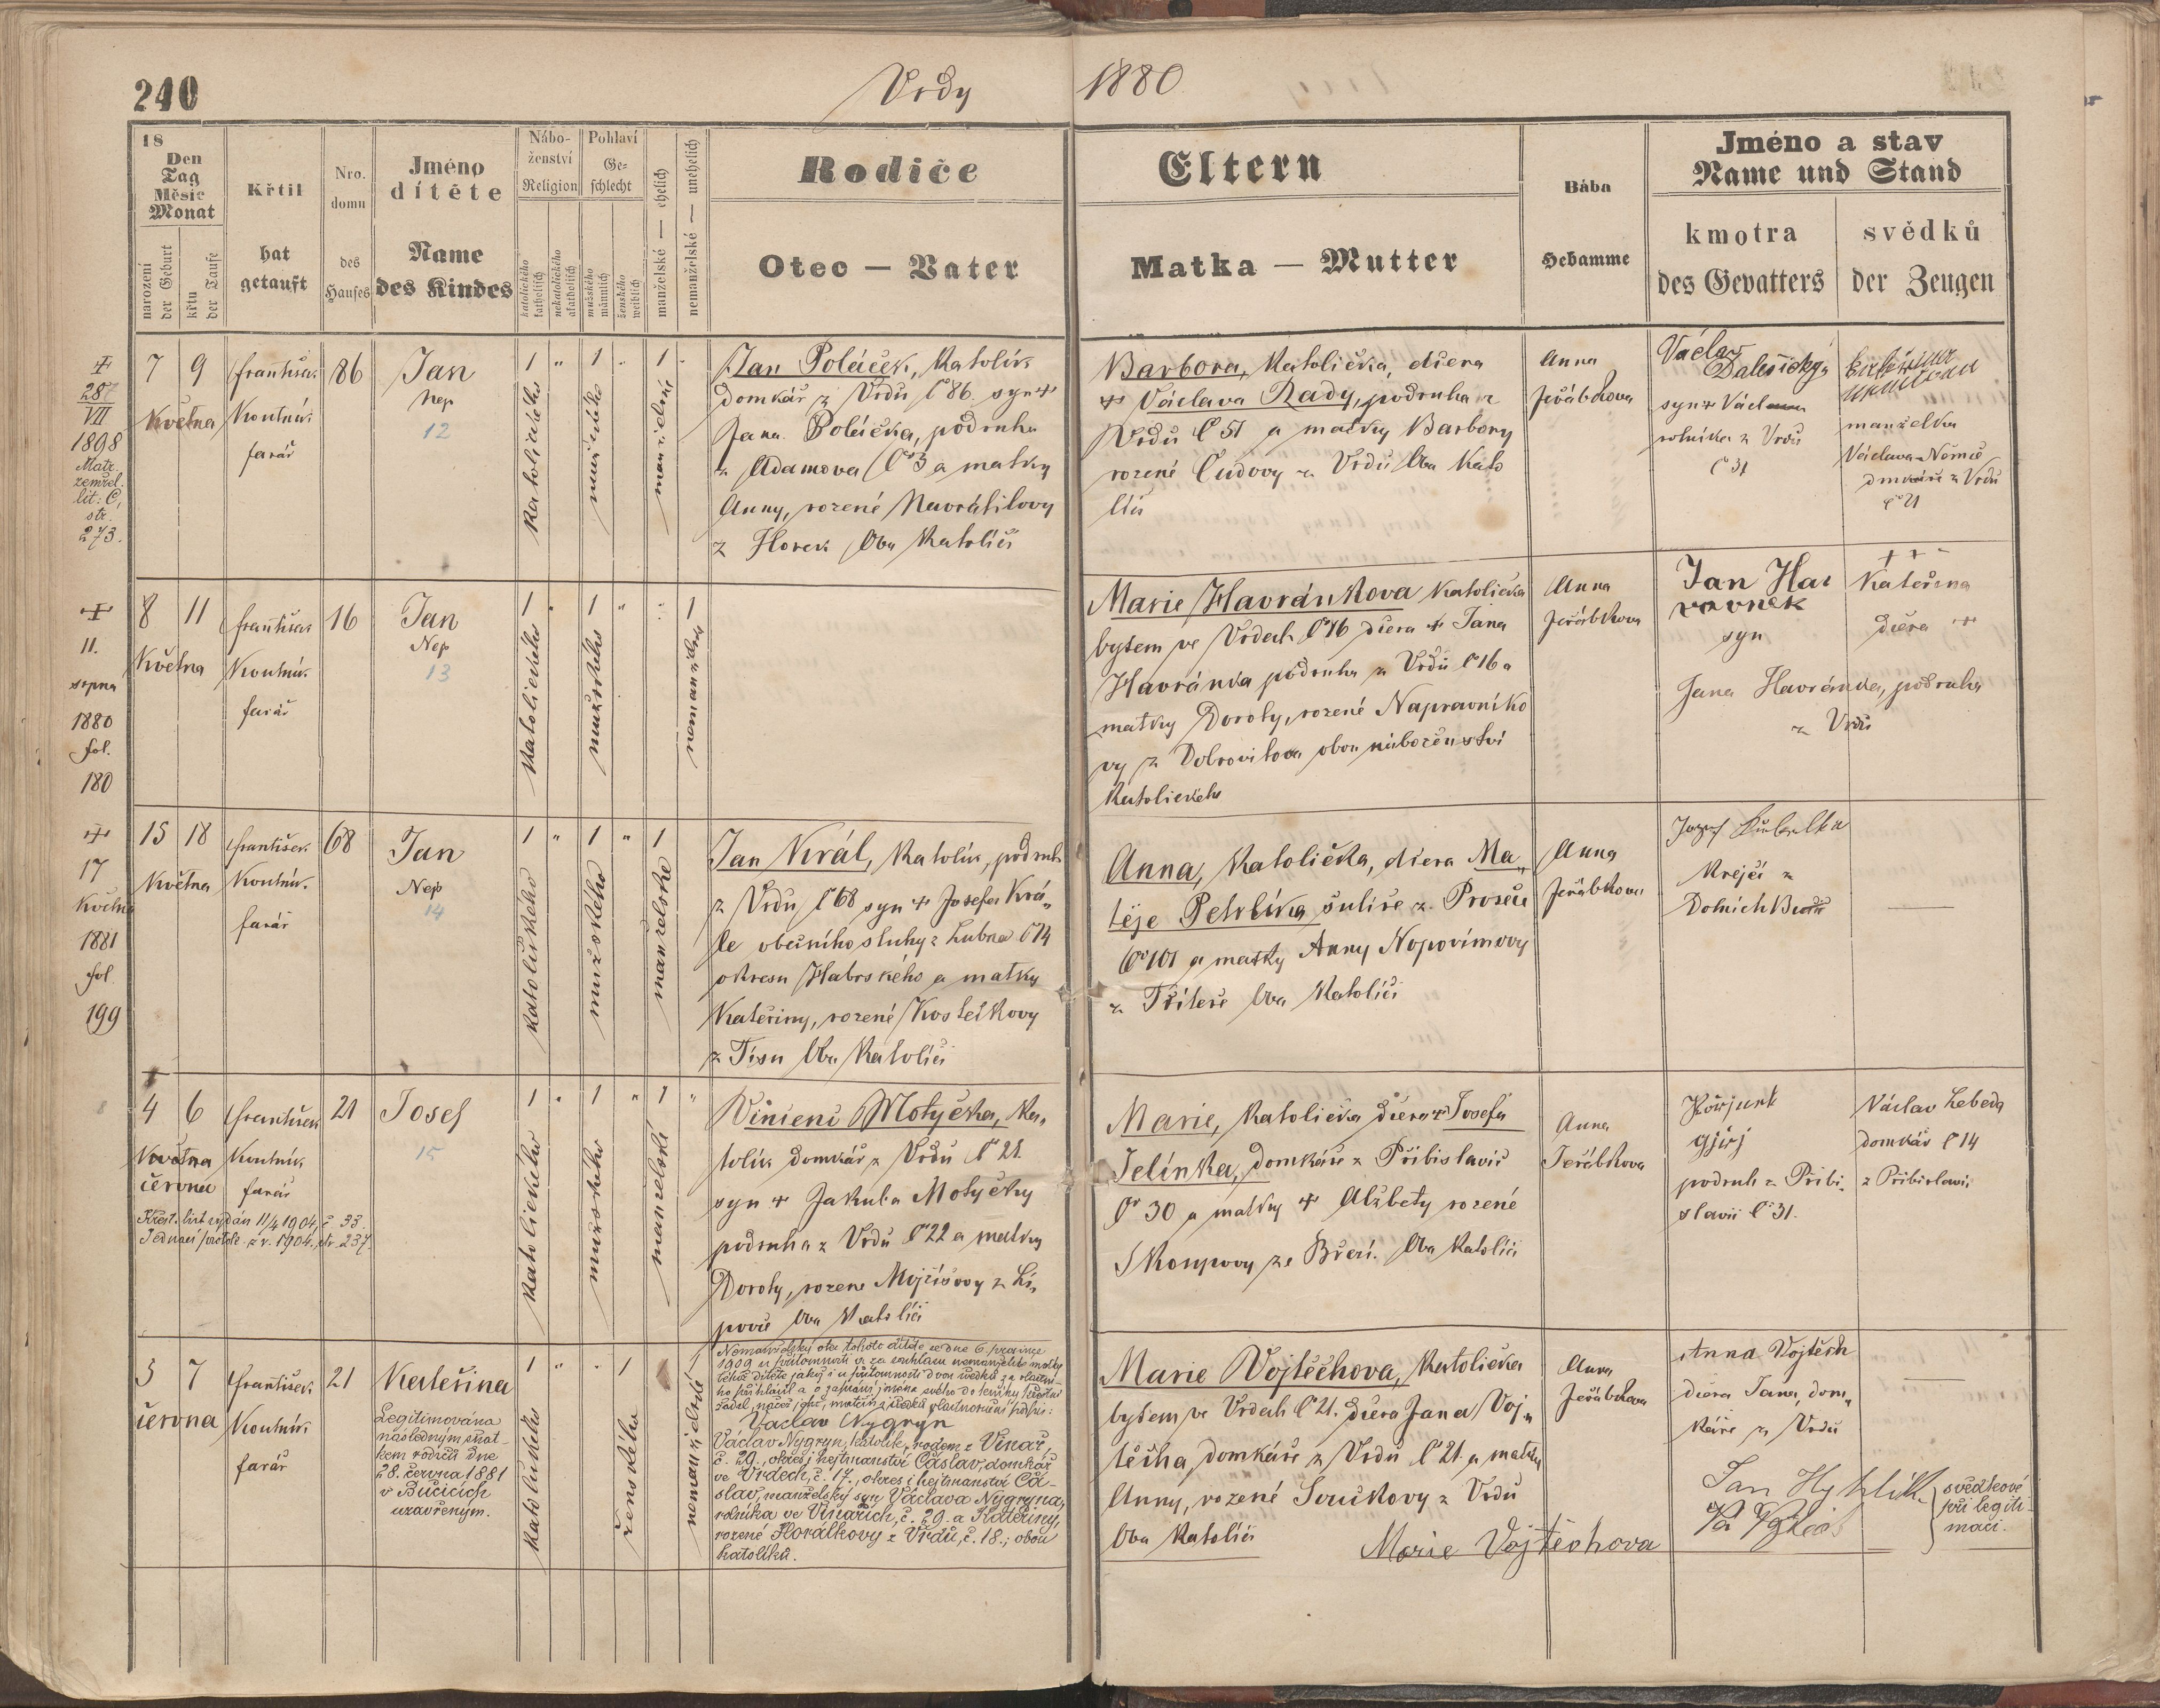 240
Vrdy
1880.
18
Den
Tag
Měsíc
Monat
narození
der Geburt
křtu
der Taufe
Křtil
hat
getauft
Nro.
domu
des
Hauses
Jméno
dítěte
Name
des Kindes
Nábo-
ženství
Religion
katolického
katholisch
nekatolického
akatholisch
Pohlaví
Ge-
schlecht
mužského
männlich
ženského
weiblich
manželské — ehelich
nemanželské — unehelich
Rodiče
Otec — Vater
Eltern
Matka — Mutter
Bába
Hebamme
Jméno a stav
Name und Stand
kmotra
des Gevatters
svědků
der Zeugen
VII
1898
Matr.
zemřel.
lit: C,
str.
273.
7 9
Května
František
Koutník
farář
86
Jan
Nep
12
1 " 1 " 1
katolického
mužského
manželské
Jan Poláček, Katolík
domkář z Vrdů č 86 syn +
Jana Poláčka, podruha
z Adamova č 3 a matky
Anny, rozené Navrátilovy
z Horek Oba Katolíci
Barbora, Katolička, dcera
+ Václava Rady, podruha z
Vrdů č 51 a matky Barbory
rozené Čudovy z Vrdů Oba Kato
líci
Anna
Jeřábkova
Václav
syn + Václava
rolníka z Vrdů
č 31
manželka
Václava Němce
domkáře z Vrdů
č 21
+
11.
srpna
1880
fol.
180
8 11
Května
František
Koutník
farář
16
Jan
Nep
13
1 " 1 " 1
katolického
mužského
nemanželské
Marie Havránkova Katolička
bytem ve Vrdech č 16 dcera + Jana
Havránka podruha z Vrdů č 16 a
matky Doroty, rozené Napravníko
vy z Dobrovítova obou náboženství
Katolického
Anna
Jeřábkova
Jan Hav
ranek
syn
Jana Havránka, podruha
z Vrdů
+++
Kateřina
dcera +
+
17
Května
1881
fol.
199
15 18
Května
František
Koutník
farář
68
Jan
Nep
14
1 " 1 " 1
katolického
mužského
manželské
Jan Král, Katolík, podruh
z Vrdů č 68 syn + Josefa Krá„
le obecního sluhy z Lubna č 14
okresu Habrského a matky
Kateřiny, rozené Kostečkovy
z Tisu Oba Katolíci
Anna, Katolička, dcera Ma„
těje Petrlíka šulíře z Proseče
č 101 a matky Anny Nepovímovy
Oba Katolíci
Anna
Jeřábkova
Josef Kubelka
Krejčí z
Dolních Bučic
4 6
Května
června
František
Koutník
farář
Křest. list vydán 11/4 1904, č 33.
21
Josef
15
1 " 1 " 1 "
katolického
mužského
manželské
Motyčka, Ka„
tolík domkář z Vrdů č 21
syn + Jakuba Motyčky
podruha z Vrdů č 22 a matky
Doroty, rozené Mojžíšovy z Li„
povce Oba Katolíci
Marie, Katolička dcera + Josefa
Jelínka, domkáře z Přibislavic
č 30 a matky + Alžbety rozené
Skoupovy ze Březí. Oba Katolíci
Anna
Jeřábkova
podruh z Přibi„
slavic č 31.
Václav Lebeda
domkář č 14
z Přibislavic
5 7
června
František
Koutník
farář
21
Kateřina
Legitimována
následným sňat-
kem rodičů dne
28. června 1881
v Bučicích
uzavřeným.
1 " " 1 1
katolického
ženského
nemanželské
Nemanželský otec tohoto dítěte se dne 6. prosince
1909 u přítomnosti a za souhlasu nemanželské matky
téhož dítěte jakož i u přítomnosti dvou svědků za vlastní-
ho přihlásil a o zapsání jména svého do matriky křestní
Vaclav Nygryn
Václav Nygryn, katolík, rodem z Vinař,
č. 29., okres i hejtmanství Čáslav, domkář
ve Vrdech, č. 17., okres i hejtmanství Čá-
slav, manželský syn Václava Nygryna,
rolníka ve Vinařích, č. 29. a Kateřiny,
rozené Horálkovy z Vrdů, č. 18.; obou
katolíků.
Marie Vojtěchova, Katolička
bytem ve Vrdech č 21. dcera Jana Voj„
těcha, domkáře z Vrdů č 21 a matky
Anny, rozené Součkovy z Vrdů
Oba Katolíci
Marie Vojtěchova
Anna
Jeřábkova
Anna Vojtěch
dcera Jana, dom„
káře z Vrdů
Jan
svědkové
při legiti-
maci.